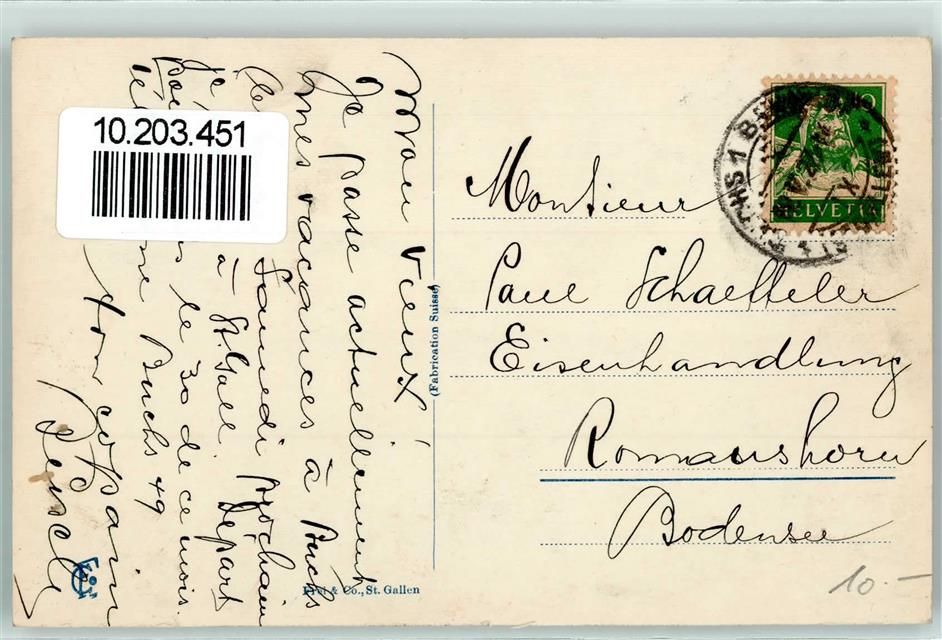 Mon vieux!
Je passe actuellement
mes vacances à Buchs
Samedi prochain
à St. Gall. Départ
le 30 de ce mois.
Buchs 49
ton copain
10.203.451
(Fabrication Suisse)
Frei & Co., St. Gallen
10
HELVETIA
Monsieur
Paul Schaeffeler
Eisenhandlung
Romanshorn
Bodensee
10.-